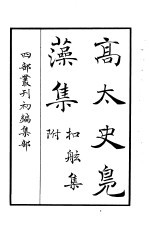 高太史鳧
藻集
扣舷集
附
四部叢刊初編集部